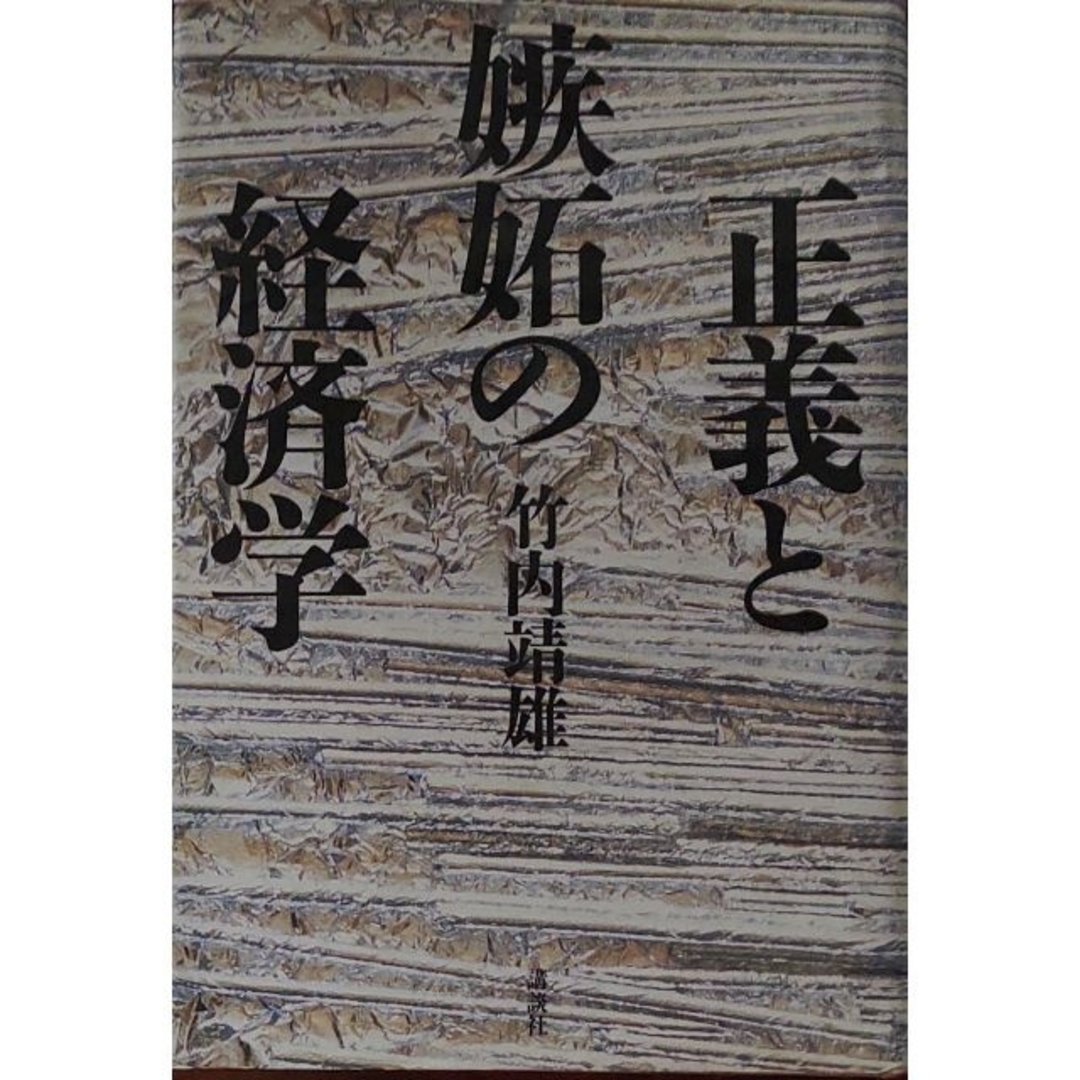 正義と
嫉妬の
経済学
竹内靖雄
講談社